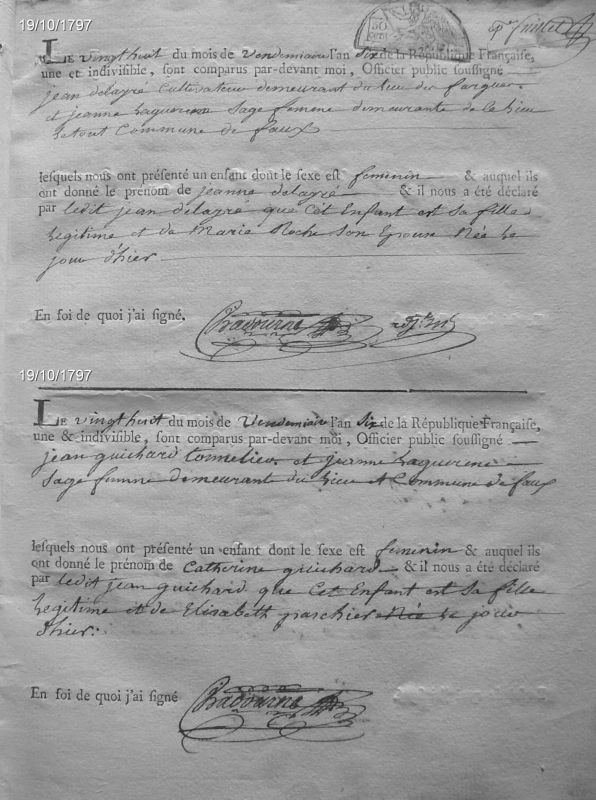 19/10/1797
LE vingt huit du mois de Vendemiaire l'an Six de la République Française,
une et indivisible, sont comparus par-devant moi, Officier public souſſigné
jean delayré Cultivateur demeurant du lieu des fargues
et jeanne Laguerene Sage femene demeurante de Le lieu
Letout Commune de faux
leſquels nous ont préſenté un enfant dont le ſexe eſt feminin & auquel ils
ont donné le prénom de jeanne delayré & il nous a été déclaré
par ledit jean delayré que Cét Enfant est Sa fille
Legitime et de Marie Roche Son Epouse Née Le
jour d'hier
En foi de quoi j'ai ſigné. Chadourne
19/10/1797
LE vingt huit du mois de Vendemiaire l'an Six de la République Françaiſe,
une & indiviſible, ſont comparus par-devant moi, Officier public ſouſſigné
jean guichard tonnelier et jeanne Laguerene
Sage femme demeurant du Lieu et Commune de faux
leſquels nous ont préſenté un enfant dont le ſexe eſt feminin & auquel ils
ont donné le prénom de Catherine guichard & il nous a été déclaré
par ledit jean guichard que Cet Enfant est Sa fille
Legitime et de Elisabeth graschier Née Le jour
d'hier.
En foi de quoi j'ai ſigné Chadourne